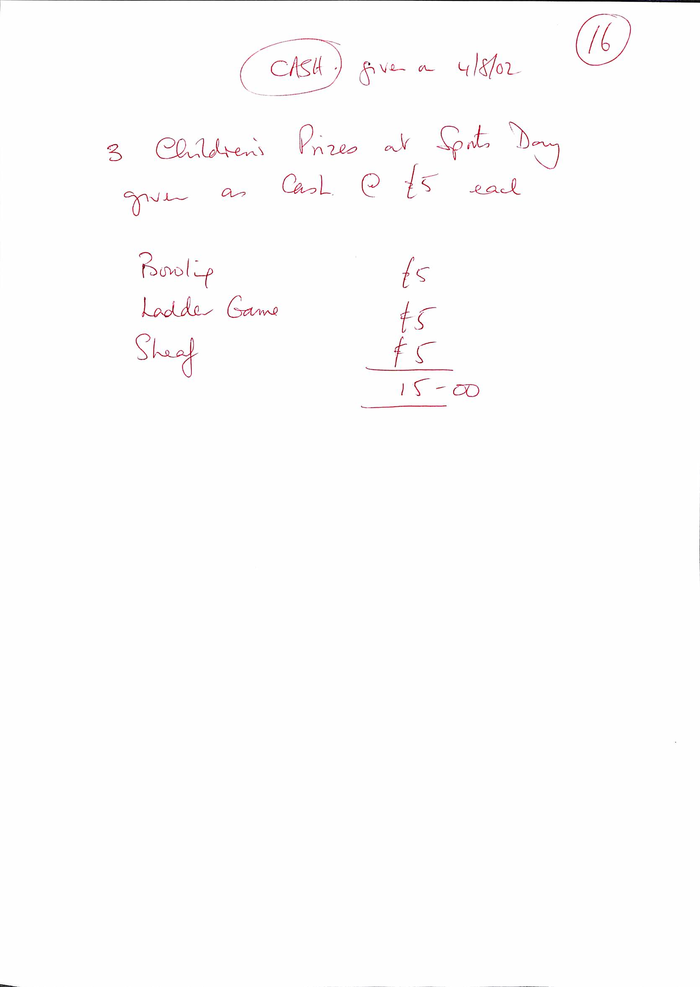 16
CASH. given on 4/8/02
3 Children's Prizes at Sports Day
given as Cash @ £5 each
Bowling £5
Ladder Game £5
Sheaf £5
15-00